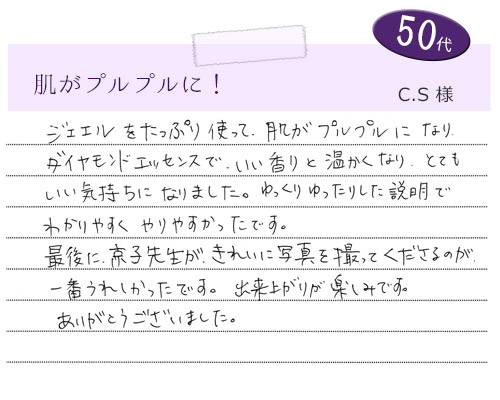 50代
肌がプルプルに！
C.S 様
ジェエルをたっぷり使って、肌がプルプルになり、
ダイヤモンドエッセンスで、いい香りと温かくなり、とても
いい気持ちになりました。ゆっくりゆったりした説明で
わかりやすく やりやすかったです。
最後に、京子先生が、きれいに写真を撮ってくださるのが、
一番うれしかったです。出来上がりが楽しみです。
ありがとうございました。